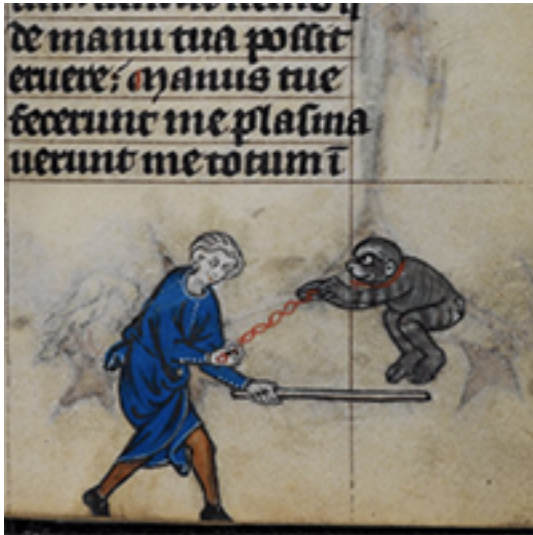 de manu tua possit
eruere; Manus tue
fecerunt me plasma
uerunt me totum ī